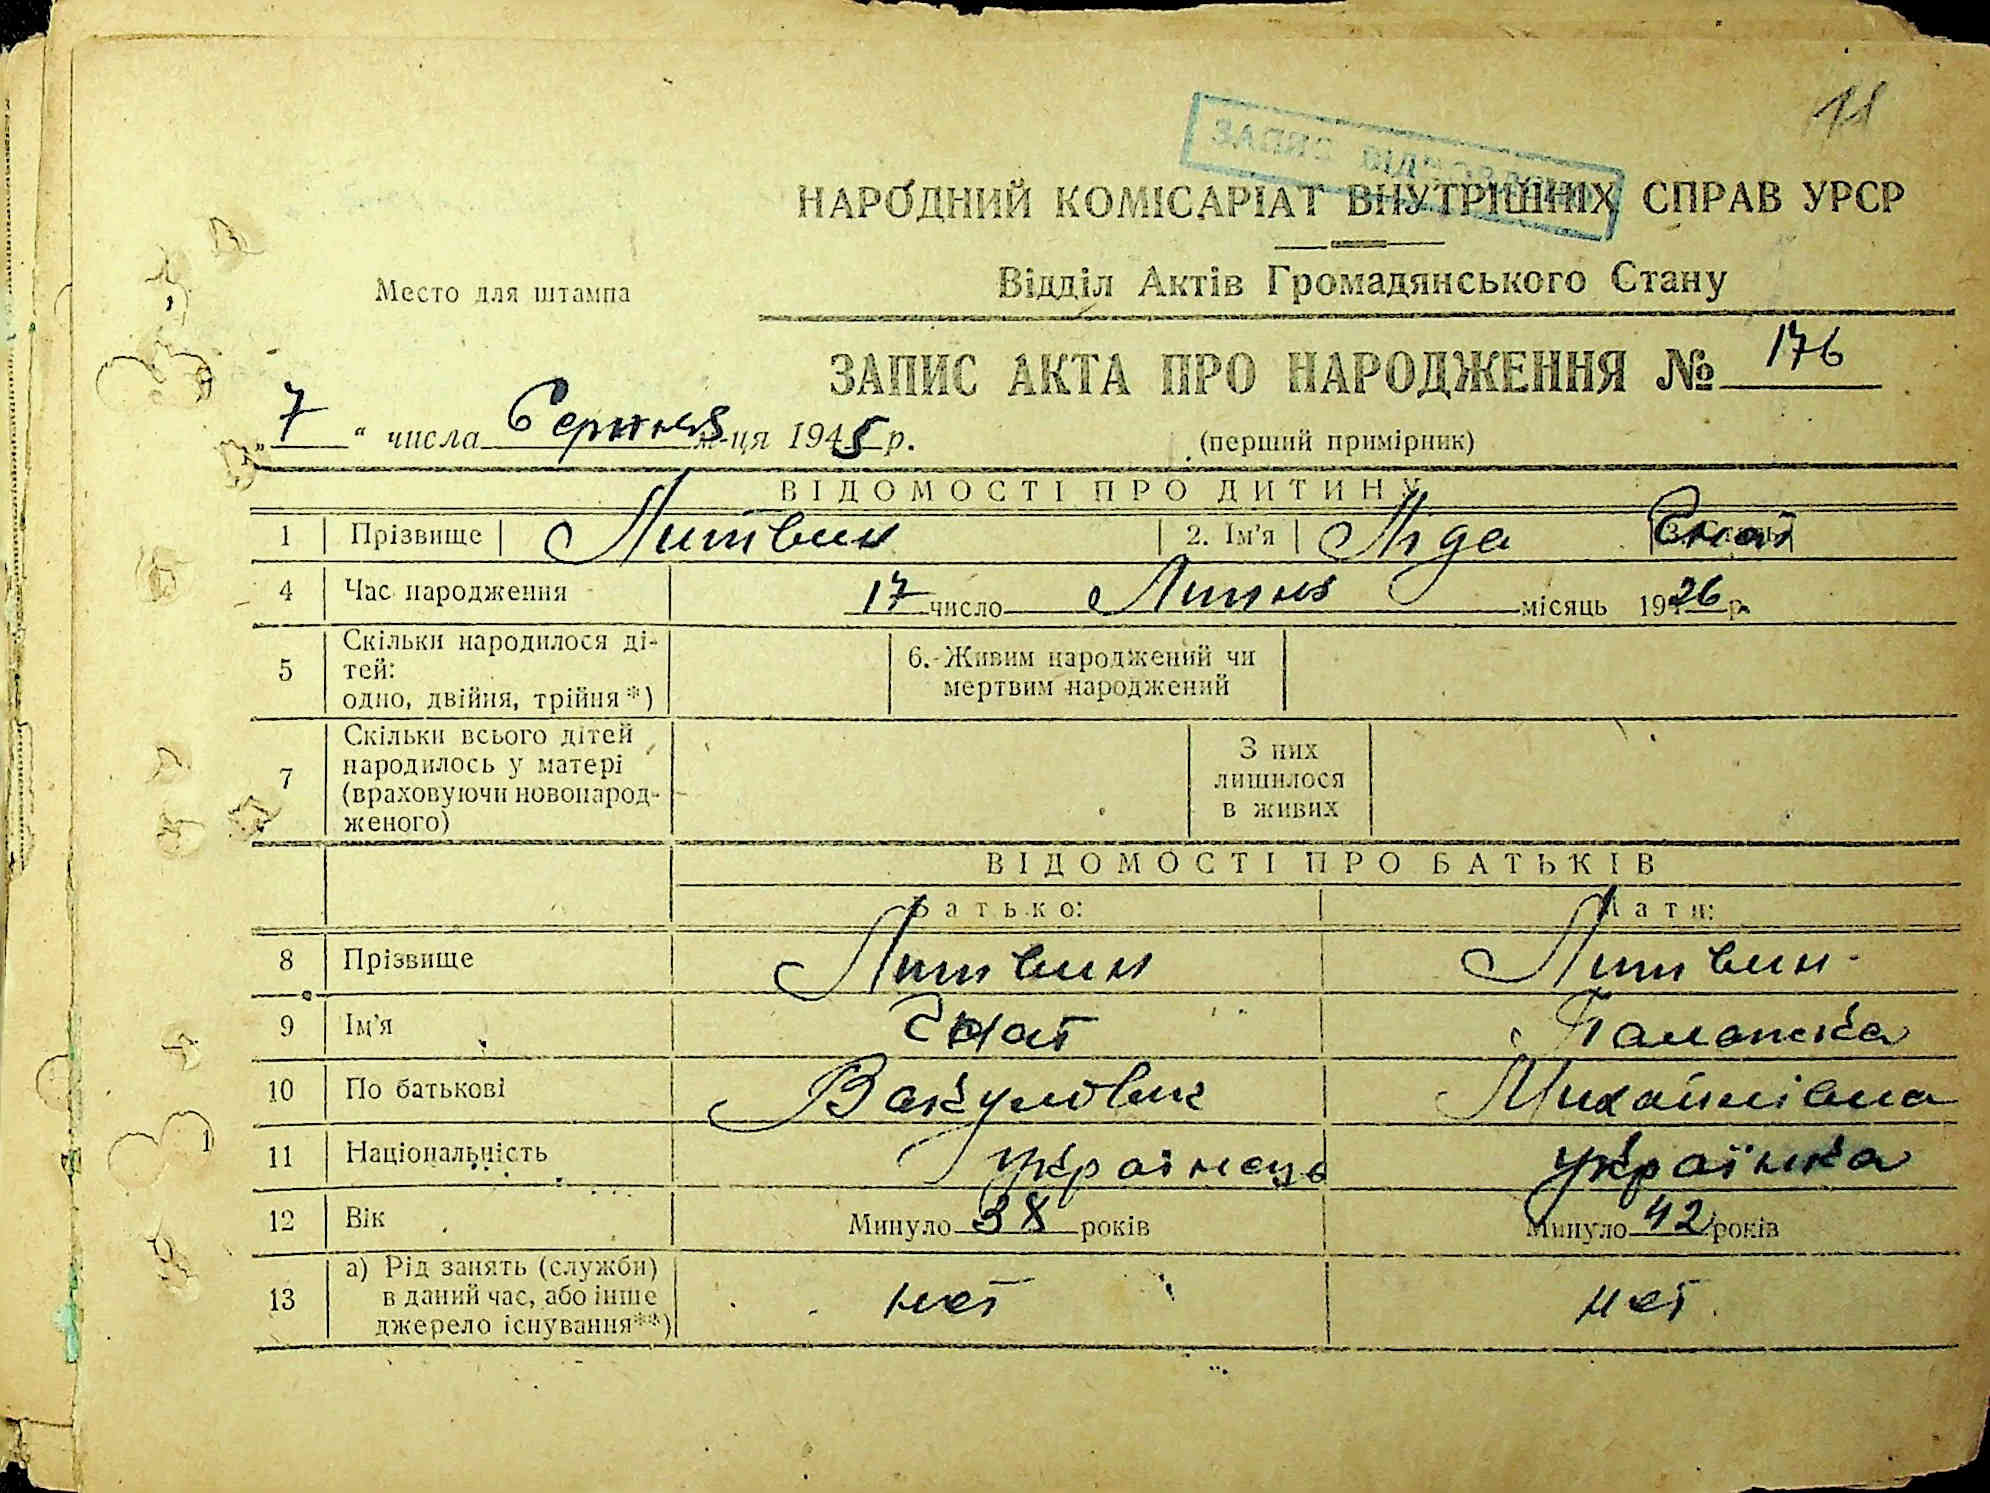 11
НАРОДНИЙ КОМІСАРІАТ ВНУТРІШНІХ СПРАВ УРСР
Место для штампа
Відділ Актів Громадянського Стану
ЗАПИС АКТА ПРО НАРОДЖЕННЯ № 176
„7“ числа Серпня м-ця 1945 р. (перший примірник)
ВІДОМОСТІ ПРО ДИТИНУ
1 Прізвище Литвин 2. Ім'я Ліда
4 Час народження 17 число Липня місяць 1926 р.
5 Скільки народилося дітей: одно, двійня, трійня*) 6. Живим народжений чи мертвим народжений
7 Скільки всього дітей народилось у матері (враховуючи новонародженого) З них лишилося в живих
ВІДОМОСТІ ПРО БАТЬКІВ
Батько: Мати:
8 Прізвище Литвин Литвин
9 Ім'я Гнат Палажка
10 По батькові Вакулович Михайлівна
11 Національність українець українка
12 Вік Минуло 38 років Минуло 42 років
13 а) Рід занять (служби) в даний час, або інше джерело існування**) нет нет